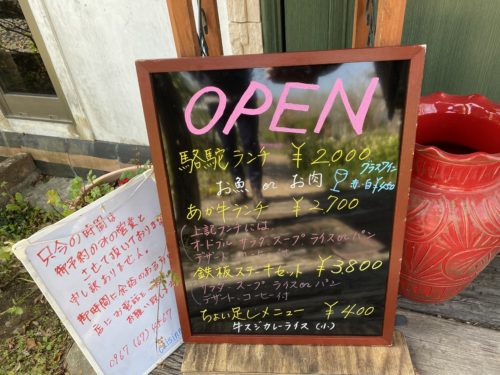 OPEN
駱駝ランチ ￥2000
お魚 or お肉
グラスワイン
赤・白 ￥400
あか牛ランチ ￥2,700
上記ランチには、
オードブル サラダ、スープ ライス or パン
デザート
鉄板ステーキセット ￥3800
サラダ・スープ ライス or パン
デザート・コーヒー付
ちょい足しメニュー ￥400
牛スジカレーライス (小)
只今の時間は
御予約のみの営業と
させて頂いております
申し訳ありません。
御時間に余裕のある方は
0967 (67)